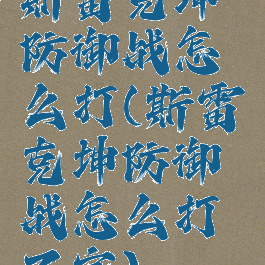 斯雷克坤
防御战怎
么打(斯雷
克坤防御
战怎么打